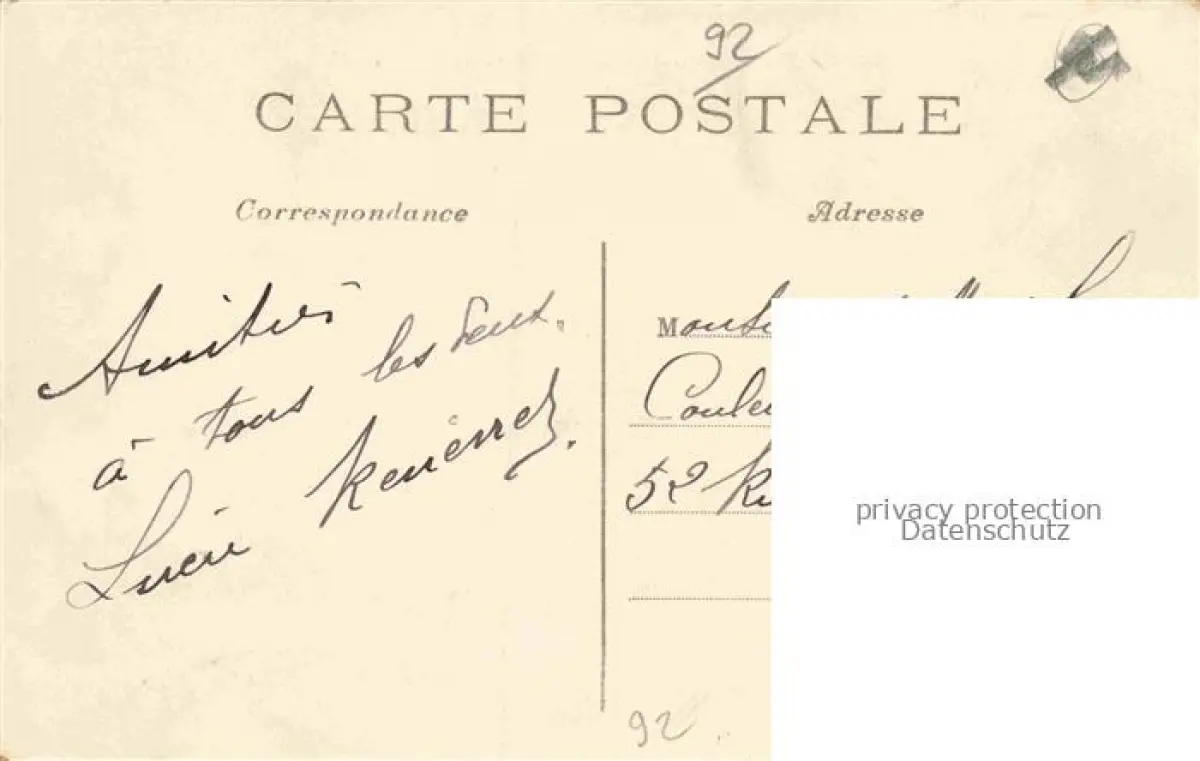 92
CARTE POSTALE
Correspondance
Adresse
Amitiés
à tous les deux.
Lucie
M
52
privacy protection
Datenschutz
92